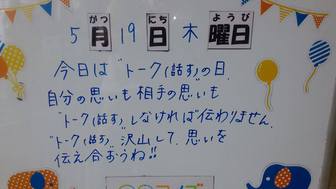 がつ にち ようび
5 月 19 日 木 曜日
今日は"トーク(話す)の日。
自分の思いも相手の思いも
"トーク(話す)"しなければ伝わりません。
"トーク(話す)"沢山して、思いを
伝え合おうね!!